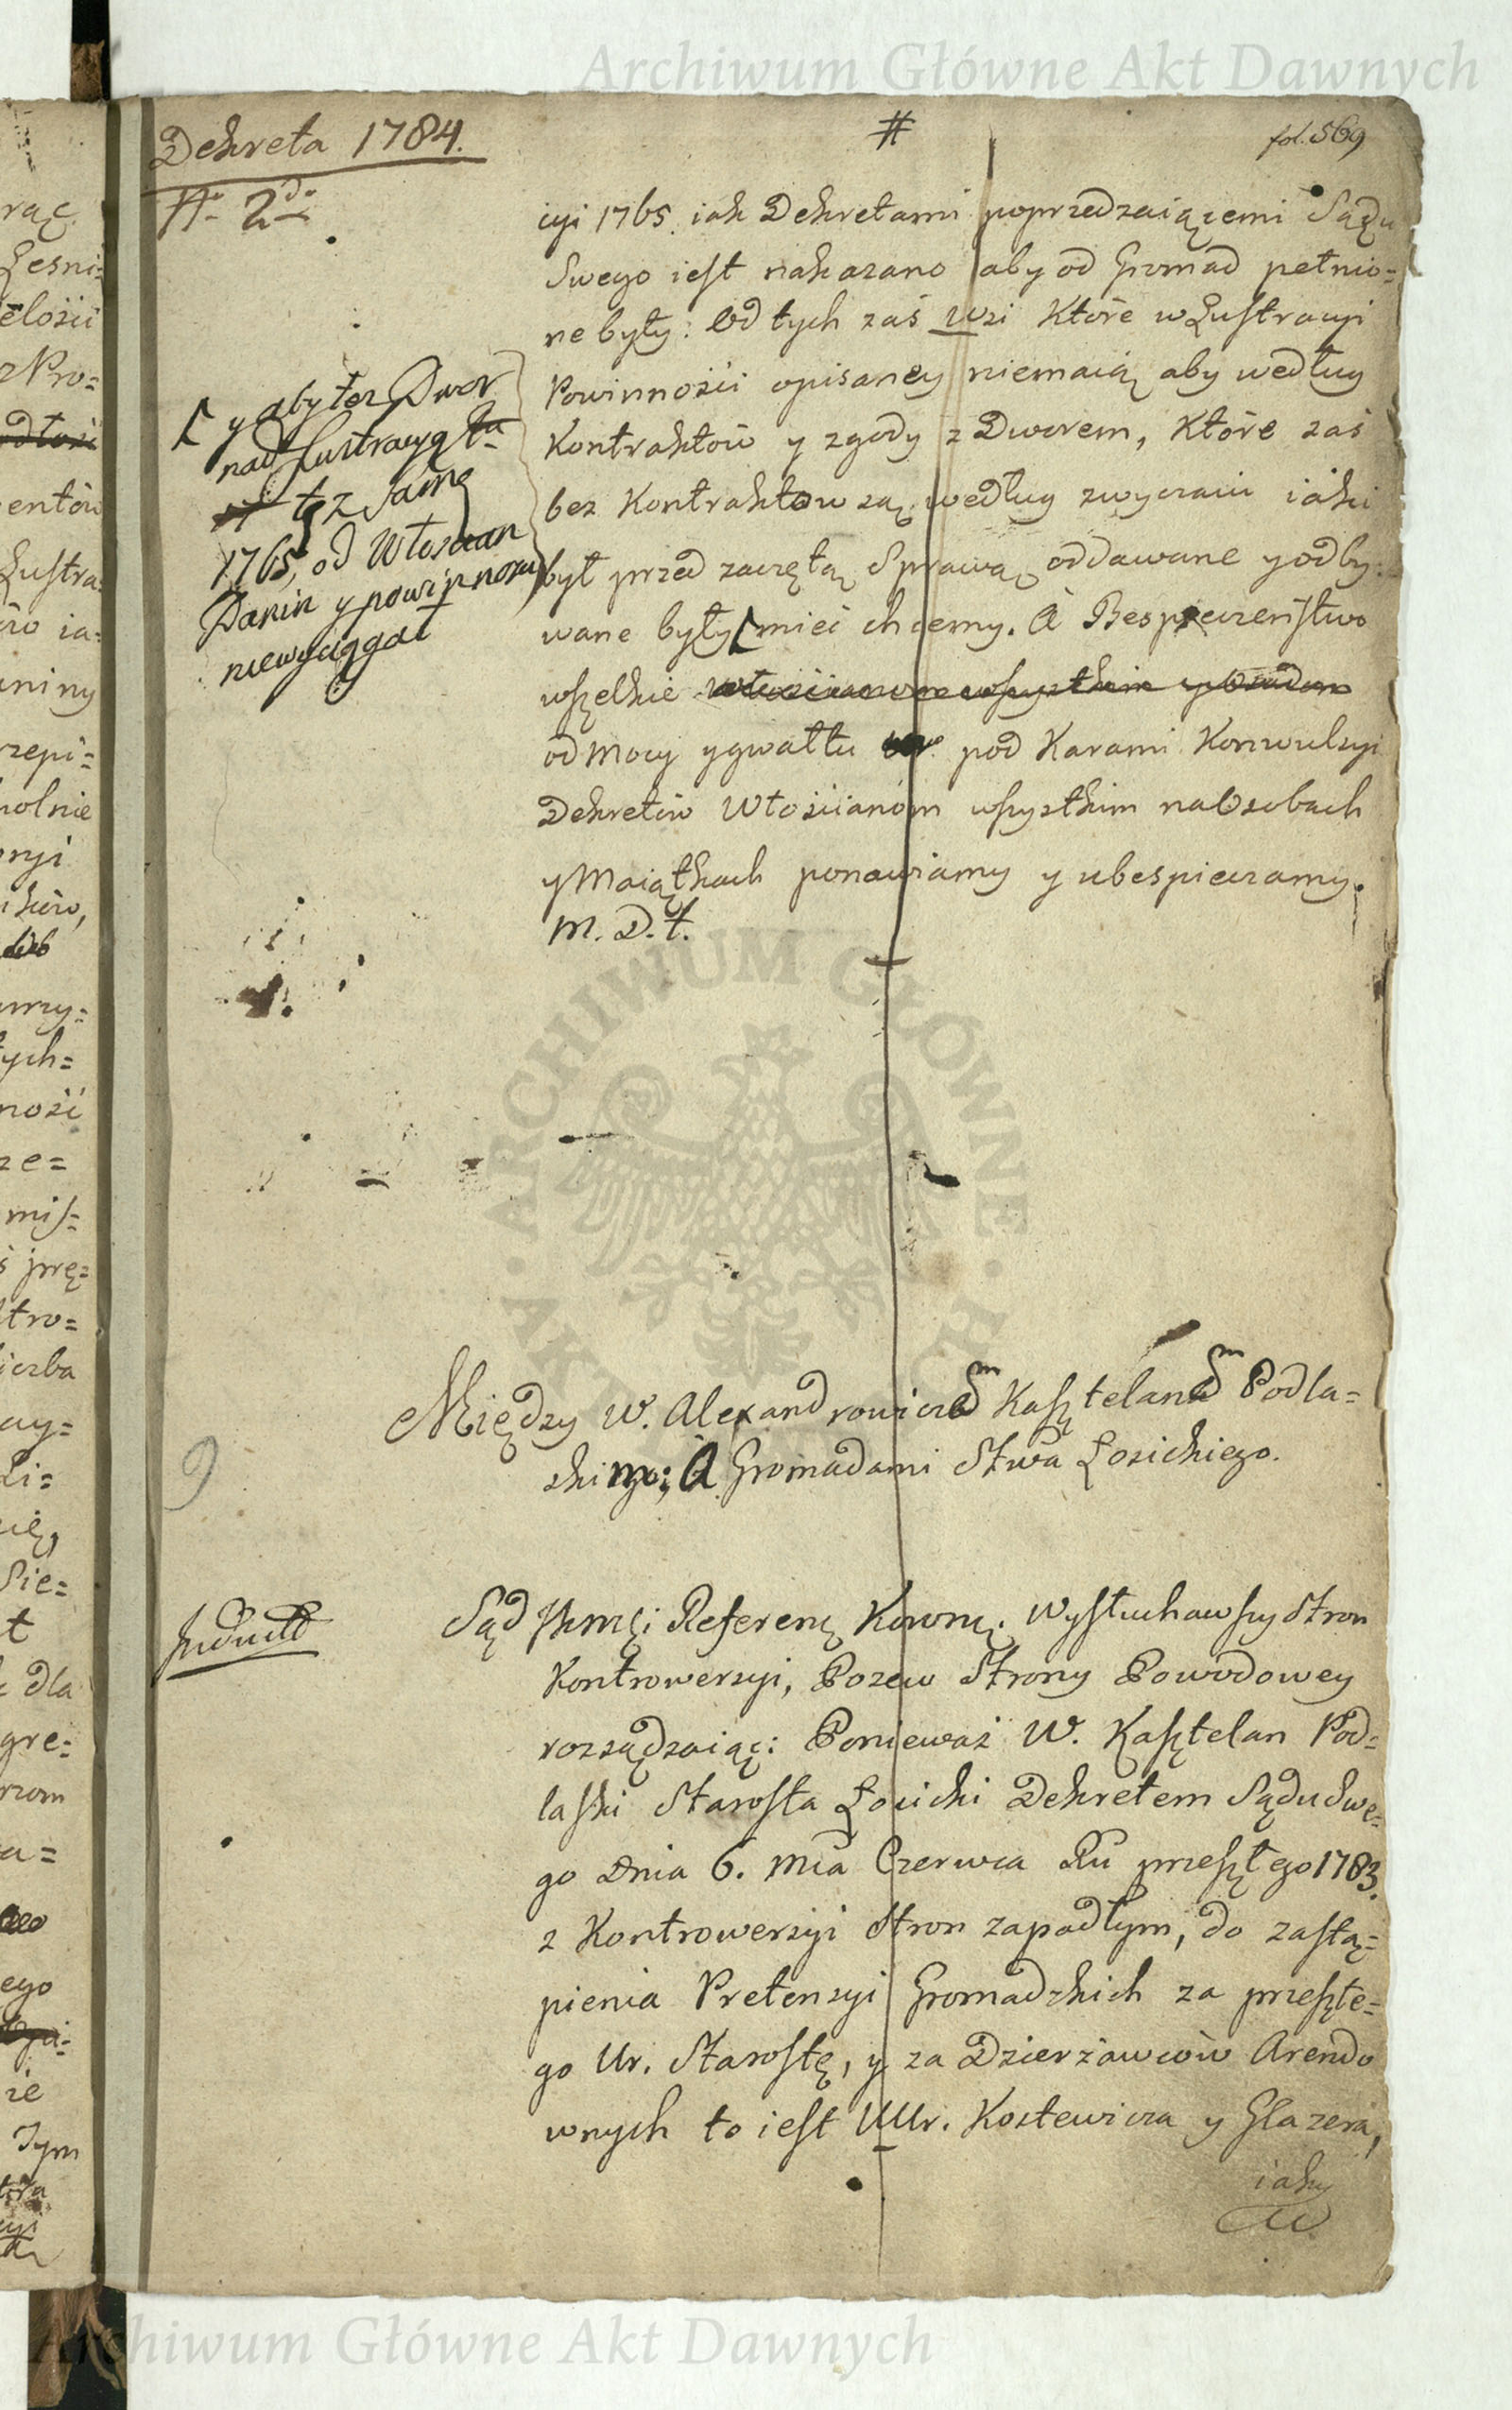 Archiwum Główne Akt Dawnych
Dekreta 1784.
#
fol. 569
No 2do
cyi 1765. iak Dekretami poprzedzaiącemi Sądu
Swego iest nakazano aby od Gromad pełnio=
ne były: Od tych zaś wsi które w Lustracyi
Powinności opisaney niemaią aby według
Kontraktów y zgody z Dworem, które zaś
bez Kontraktow są, według zwyczaiu iaki
był przed zaczętą Sprawą oddawane y odby=
wane były [ mieć chcemy. A Bespieczeństwo
wszelkie włościanom wszystkim
od Mocy y gwałtu pod Karami Konwulsyi
Dekretów Włościanóm wszystkim na Osobach
y Maiątkach ponawiamy y ubespieczamy.
M. D. t.
[ y aby tez Dwor
nad Lustracyą ta
tez samą
1765, od Włoscian
Danin y powinnosci
niewyciągał
Między W. Alexandrowiczem Kasztelanem Podla=
skim; A Gromadami Stwa Łosickiego.
9
Sąd JKmći Referenq Koronq. Wysłuchawszy Stron
Kontrowersyi, Pozew Strony Powodowey
rozsądzaiąc: Ponieważ W. Kasztelan Pod=
laski Starosta Łosicki Dekretem Sądu Swe=
go Dnia 6. Mca Czerwca Ru przeszłego 1783.
z Kontrowersyi Stron zapadłym, do zastą=
pienia Pretensyi Gromadzkich za przeszłe=
go Ur. Starostę, y za Dzierżawców Arendo
wnych to iest UUr. Kostewicza y Glazera,
iaky
ARCHIWUM GŁÓWNE AKT
Archiwum Główne Akt Dawnych